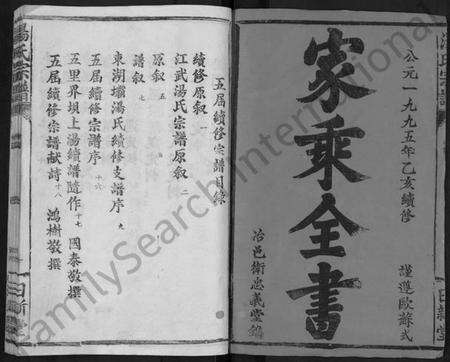 公元一九九五年乙亥續修
家乘全書
謹遵歐蘇式
冶邑衛忠義堂編
日新堂
五屆續修宗譜目錄
續修原叙 一
江武湯氏宗譜原叙 二
原叙 五
譜叙 七
東湖壋湯氏續修支譜序 九
五屆續修宗譜序 十六
五里界垻上湯續譜隨作 十七 國泰敬撰
五屆續修宗譜献詩 十 鴻樹敬撰
湯氏宗譜
日新
FamilySearch International